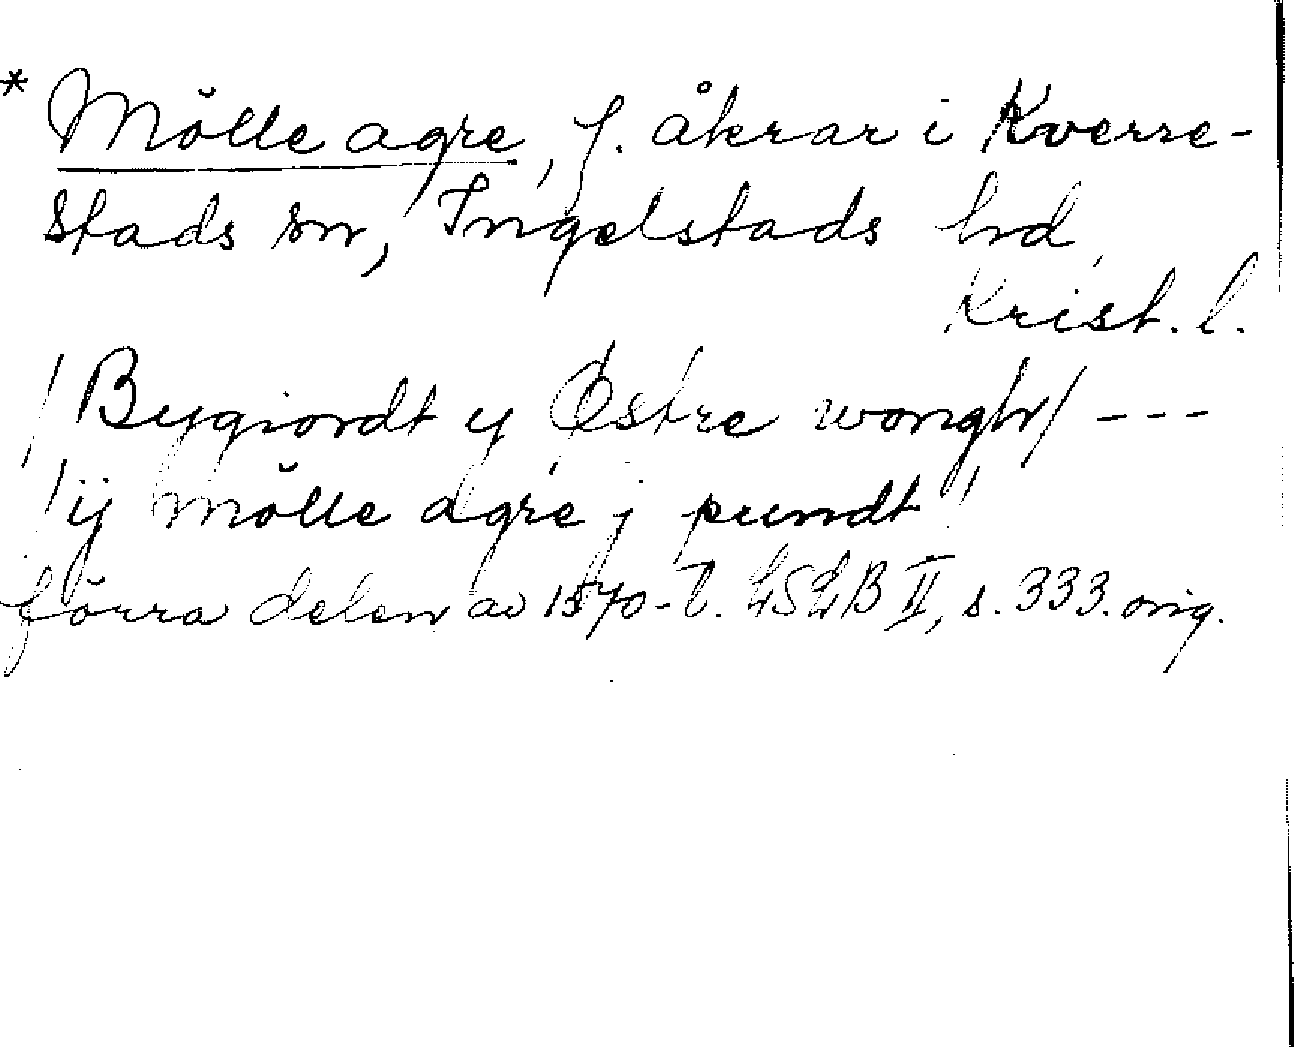 * Mölle agre, f. åkrar i Kverre-
stads sn, Ingelstads hd,
Krist. l.
/Bygiordt y Østre wongh/ ---
/ij mölle agre j pundt/
förra delen av 1570-t. LSLB II, s. 333. orig.